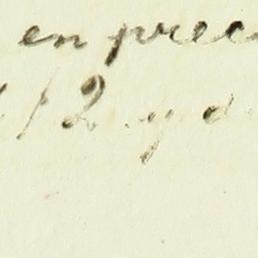 en prec
1/2 y d